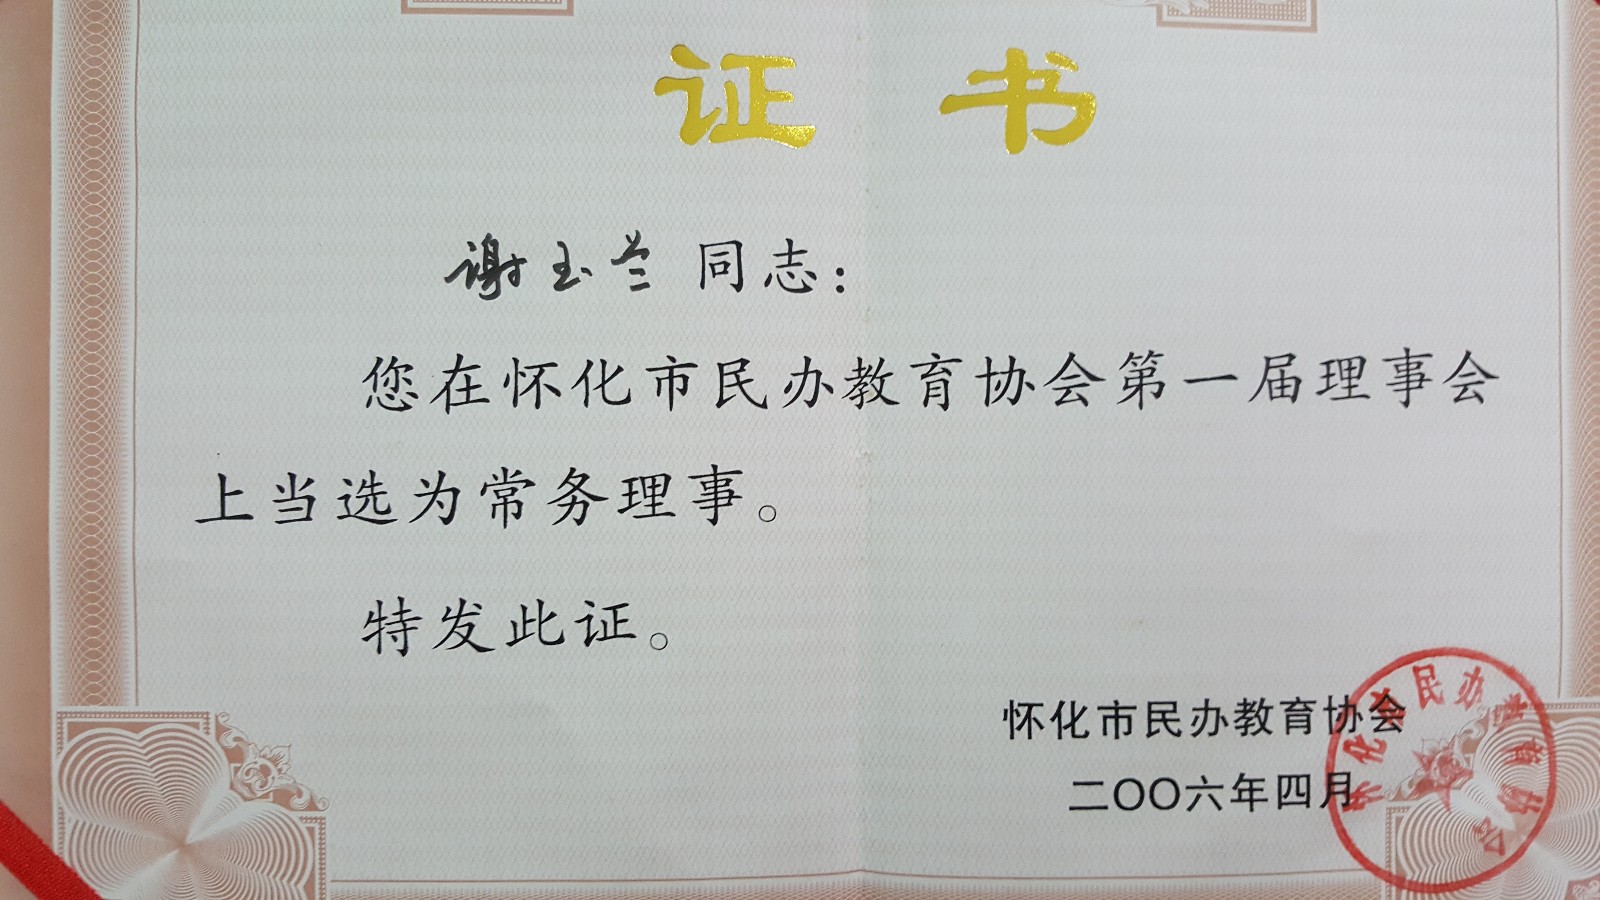 证书
谢玉兰 同志：
您在怀化市民办教育协会第一届理事会
上当选为常务理事。
特发此证。
怀化市民办教育协会
二〇〇六年四月
怀化市民办教育协会